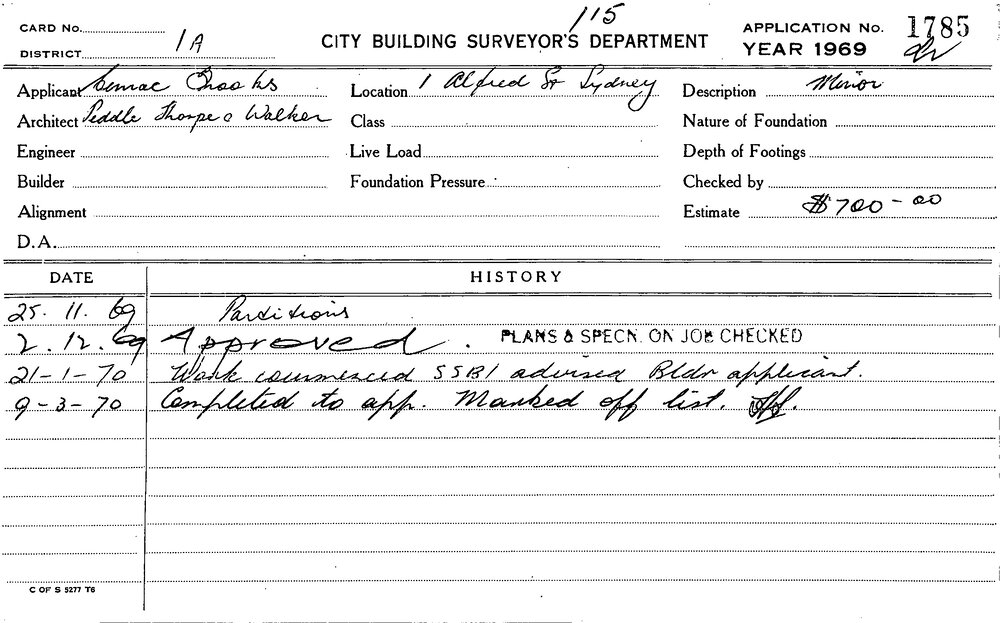 115
CARD No.
DISTRICT 1A
CITY BUILDING SURVEYOR'S DEPARTMENT
APPLICATION No. 1785
YEAR 1969
Applicant Crooks
Location 1 Alfred St Sydney
Description Minor
Architect Peddle Thorpe & Walker
Class
Nature of Foundation
Engineer
Live Load
Depth of Footings
Builder
Foundation Pressure
Checked by
Alignment
Estimate $700-00
D.A.
DATE HISTORY
25. 11. 69 Partitions
2. 12. 69 Approved. PLANS & SPECN. ON JOB CHECKED
21-1-70 Work commenced SSB1 advised Bldr applicant.
9-3-70 Completed to app. Marked off list.
C OF S 5277 T6